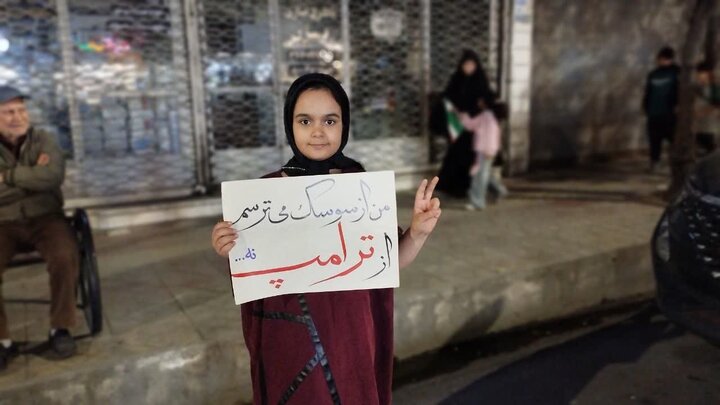 من از سوسک می ترسم
از ترامپ نه...